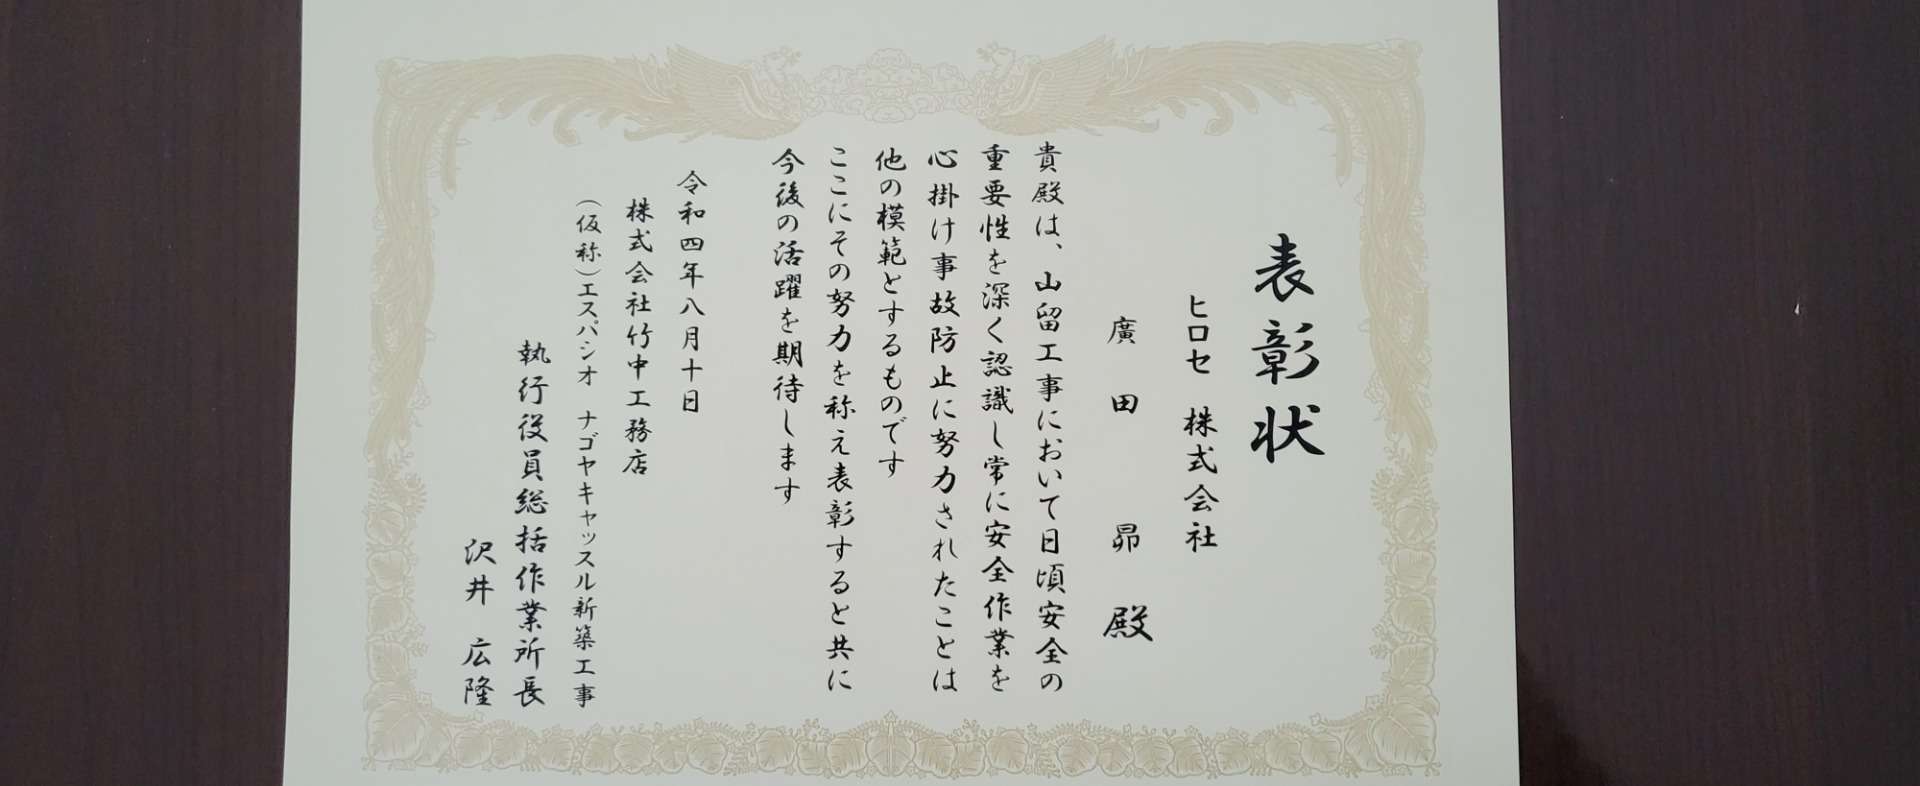 表彰状
ヒロセ 株式会社
廣田 昴 殿
貴殿は、山留工事において日頃安全の
重要性を深く認識し常に安全作業を
心掛け事故防止に努力されたことは
他の模範とするものです
ここにその努力を称え表彰すると共に
今後の活躍を期待します
令和四年八月十日
株式会社竹中工務店
(仮称)エスパシオ ナゴヤキャッスル新築工事
執行役員総括作業所長
沢井 広隆